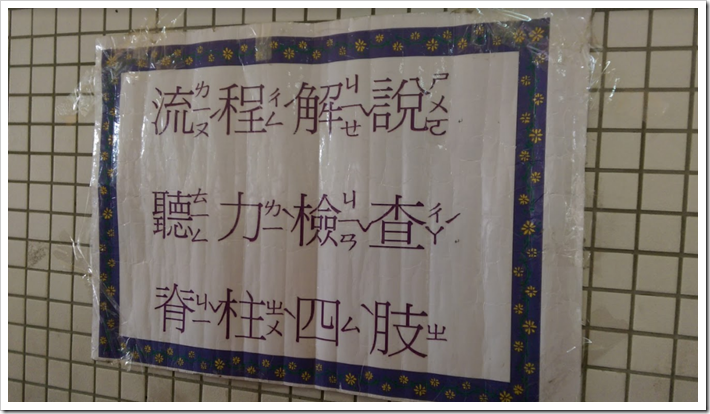 流ㄌㄧㄡˊ程ㄔㄥˊ解ㄐㄧㄝˇ說ㄕㄨㄛ
聽ㄊㄧㄥ力ㄌㄧˋ檢ㄐㄧㄢˇ查ㄔㄚˊ
脊ㄐㄧˇ柱ㄓㄨˋ四ㄙˋ肢ㄓ